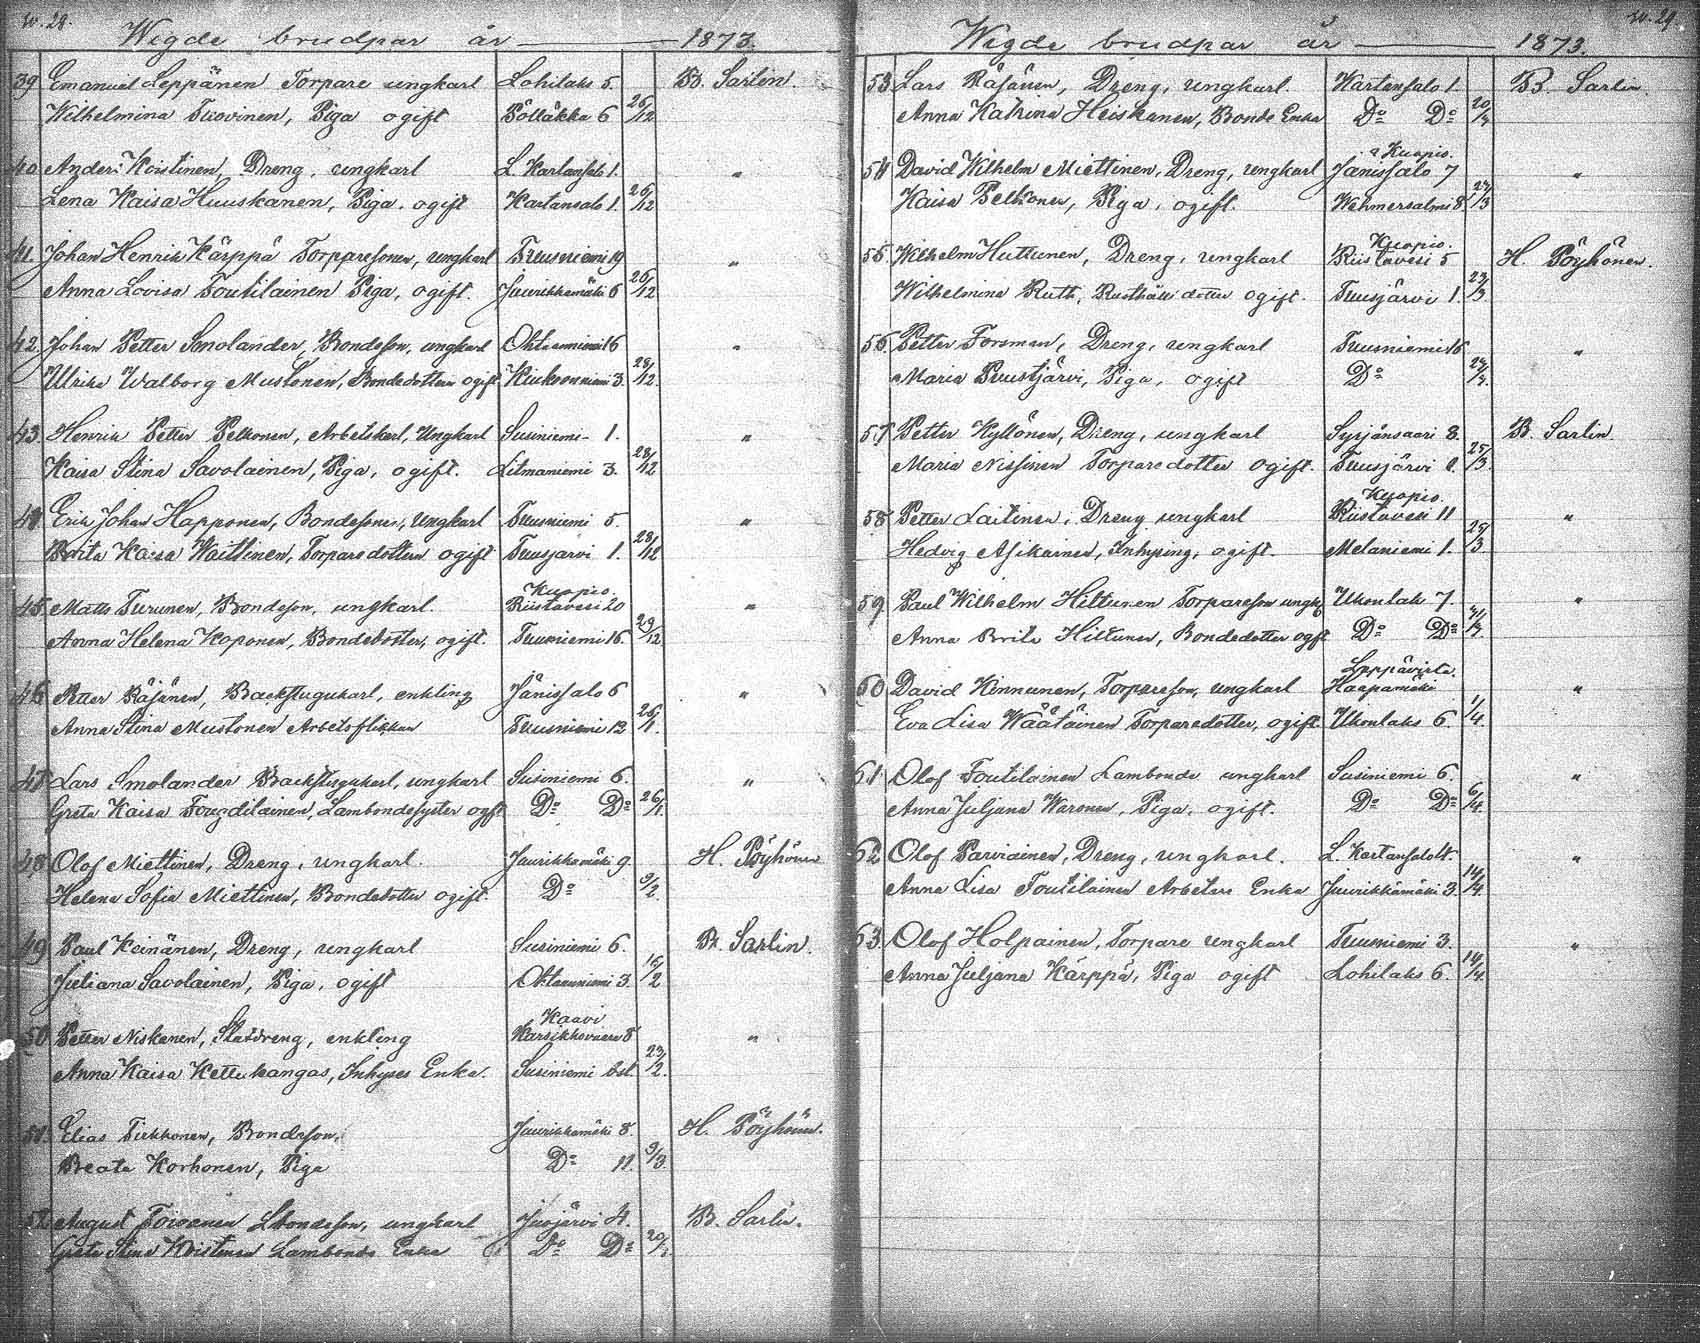 w. 28.
Wigde brudpar år — 1873.
39 Emanuel Leppänen Torpare ungkarl Lohilaks 5. B. Sarlin.
Wilhelmina Tuovinen, Piga ogift Pölläkkä 6 26/12
40. Anders Koistinen, Dreng, ungkarl L. Kartansalo 1. "
Lena Kaisa Huuskanen, Piga, ogift Kartansalo 1. 26/12
41. Johan Henrik Kärppä Torparesonen, ungkarl Tuusniemi 19 "
Anna Lovisa Toutilainen Piga, ogift. Juurikkamäki 6 26/12
42. Johan Petter Smolander, Bondeson, ungkarl Ohtaanniemi 16 "
Ulrika Walborg Mustonen, Bondedottern ogift Kiukoonniemi 3. 28/12.
43. Henrik Petter Pelkonen, Arbetskarl, Ungkarl Susiniemi 1. "
Kaisa Stina Savolainen, Piga, ogift. Litmaniemi 3. 28/12
44. Erik Johan Happonen, Bondesonen, Ungkarl Tuusniemi 5. "
Brita Kaisa Waittinen, Torparedottern ogift Tuusjärvi 1. 28/12
Kuopio.
45. Matts Turunen, Bondeson, ungkarl. Riistavesi 20 "
Anna Helena Koponen, Bondedotter, ogift. Tuusniemi 16. 29/12.
46 Petter Räsänen, Backstugukarl, enkling Jänissalo 6 "
Anna Stina Mustonen Arbetsflickan Tuusniemi 12 26/1.
47 Lars Smolander Backstugukarl, ungkarl Susiniemi 6. "
Greta Kaisa Toutilainen, Lambondesyster ogift Do Do 26/1.
48 Olof Miettinen, Dreng, ungkarl. Juurikkamäki 9. H. Pöyhönen
Helena Sofia Miettinen, Bondedotter ogift. Do 9/2.
49 Paul Keinänen, Dreng, ungkarl Susiniemi 6. B. Sarlin.
Juliana Savolainen, Piga, ogift Ohtaanniemi 3. 16/2
Kaavi
50. Petter Niskanen, Statdreng, enkling Karsikkovaara 8 "
Anna Kaisa Kettukangas, Inhyses Enka. Susiniemi bst. 23/2.
51. Elias Tiekkonen, Bondeson, Juurikkamäki 8. H. Pöyhönen.
Beata Korhonen, Piga Do 11. 9/3.
52. August Toivanen Lbondeson, ungkarl Juojärvi 4. B. Sarlin.
Greta Stina Koistinen Lambonde Enka Do Do 20/3.
w. 29.
Wigde brudpar år — 1873.
53. Lars Räsänen, Dreng, ungkarl. Kartansalo 1. B. Sarlin.
Anna Katrina Heiskanen, Bonde Enka Do Do 20/3
Kuopio.
54 David Wilhelm Miettinen, Dreng, ungkarl Jänissalo 7 "
Kaisa Pelkonen, Piga, ogift. Wehmersalmi 8 23/3
Kuopio.
55. Wilhelm Huttunen, Dreng, ungkarl Riistavesi 5 H. Pöyhönen.
Wilhelmina Ruth, dotter ogift. Tuusjärvi 1. 23/3.
56. Petter Forsman, Dreng, ungkarl Tuusniemi 16 "
Maria Puustjärvi, Piga, ogift Do 24/3.
57. Petter Kyllönen, Dreng, ungkarl Syrjänsaari 3. B. Sarlin.
Maria Nissinen Torparedotter ogift. Tuusjärvi 1. 25/3.
Kuopio.
58 Petter Laitinen, Dreng ungkarl Riistavesi 11 "
Hedvig Asikainen, Inhysing, ogift. Melaniemi 1. 25/3.
59 Paul Wilhelm Hiltunen Torpareson ungk. Ukonlaks 7. "
Anna Brita Hiltunen, Bondedotter ogift Do Do
Leppävirta.
60 David Kinnunen, Torpareson, ungkarl Haapamäki "
Eva Lisa Wäätäinen Torparedotter, ogift. Ukonlaks 6. 1/4.
61 Olof Toutilainen Lambonde ungkarl Susiniemi 6. "
Anna Juljana Waronen, Piga, ogift. Do Do 6/4.
62 Olof Parviainen, Dreng, ungkarl. L. Kartansalo "
Anna Lisa Toutilainen Arbetare Enka Juurikkamäki 3. 14/4
63. Olof Holpainen, Torpare ungkarl Tuusniemi 3. "
Anna Juljana Kärppä, Piga ogift Lohilaks 6. 14/4.